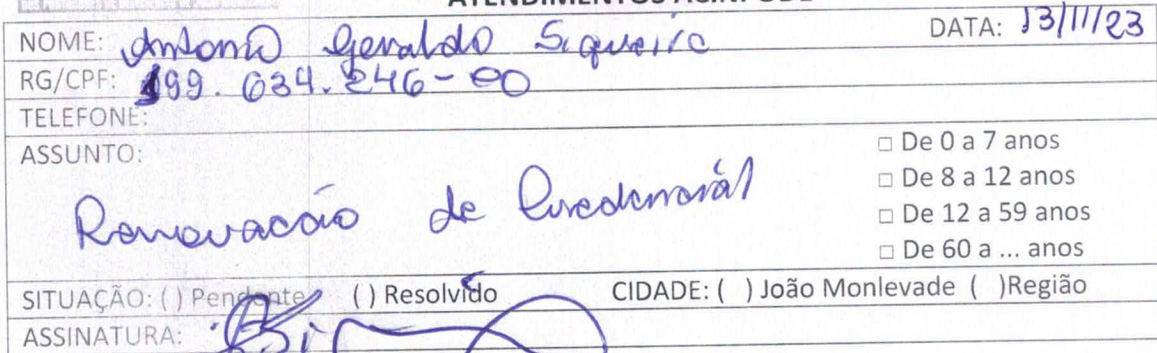 NOME: Antonio Geraldo Siqueira DATA: 13/11/23
RG/CPF: 199.634.246-00
TELEFONE:
ASSUNTO:
Renovacão de
□ De 0 a 7 anos
□ De 8 a 12 anos
□ De 12 a 59 anos
□ De 60 a ... anos
SITUAÇÃO: ( ) Pendente ( ) Resolvido CIDADE: ( ) João Monlevade ( )Região
ASSINATURA: